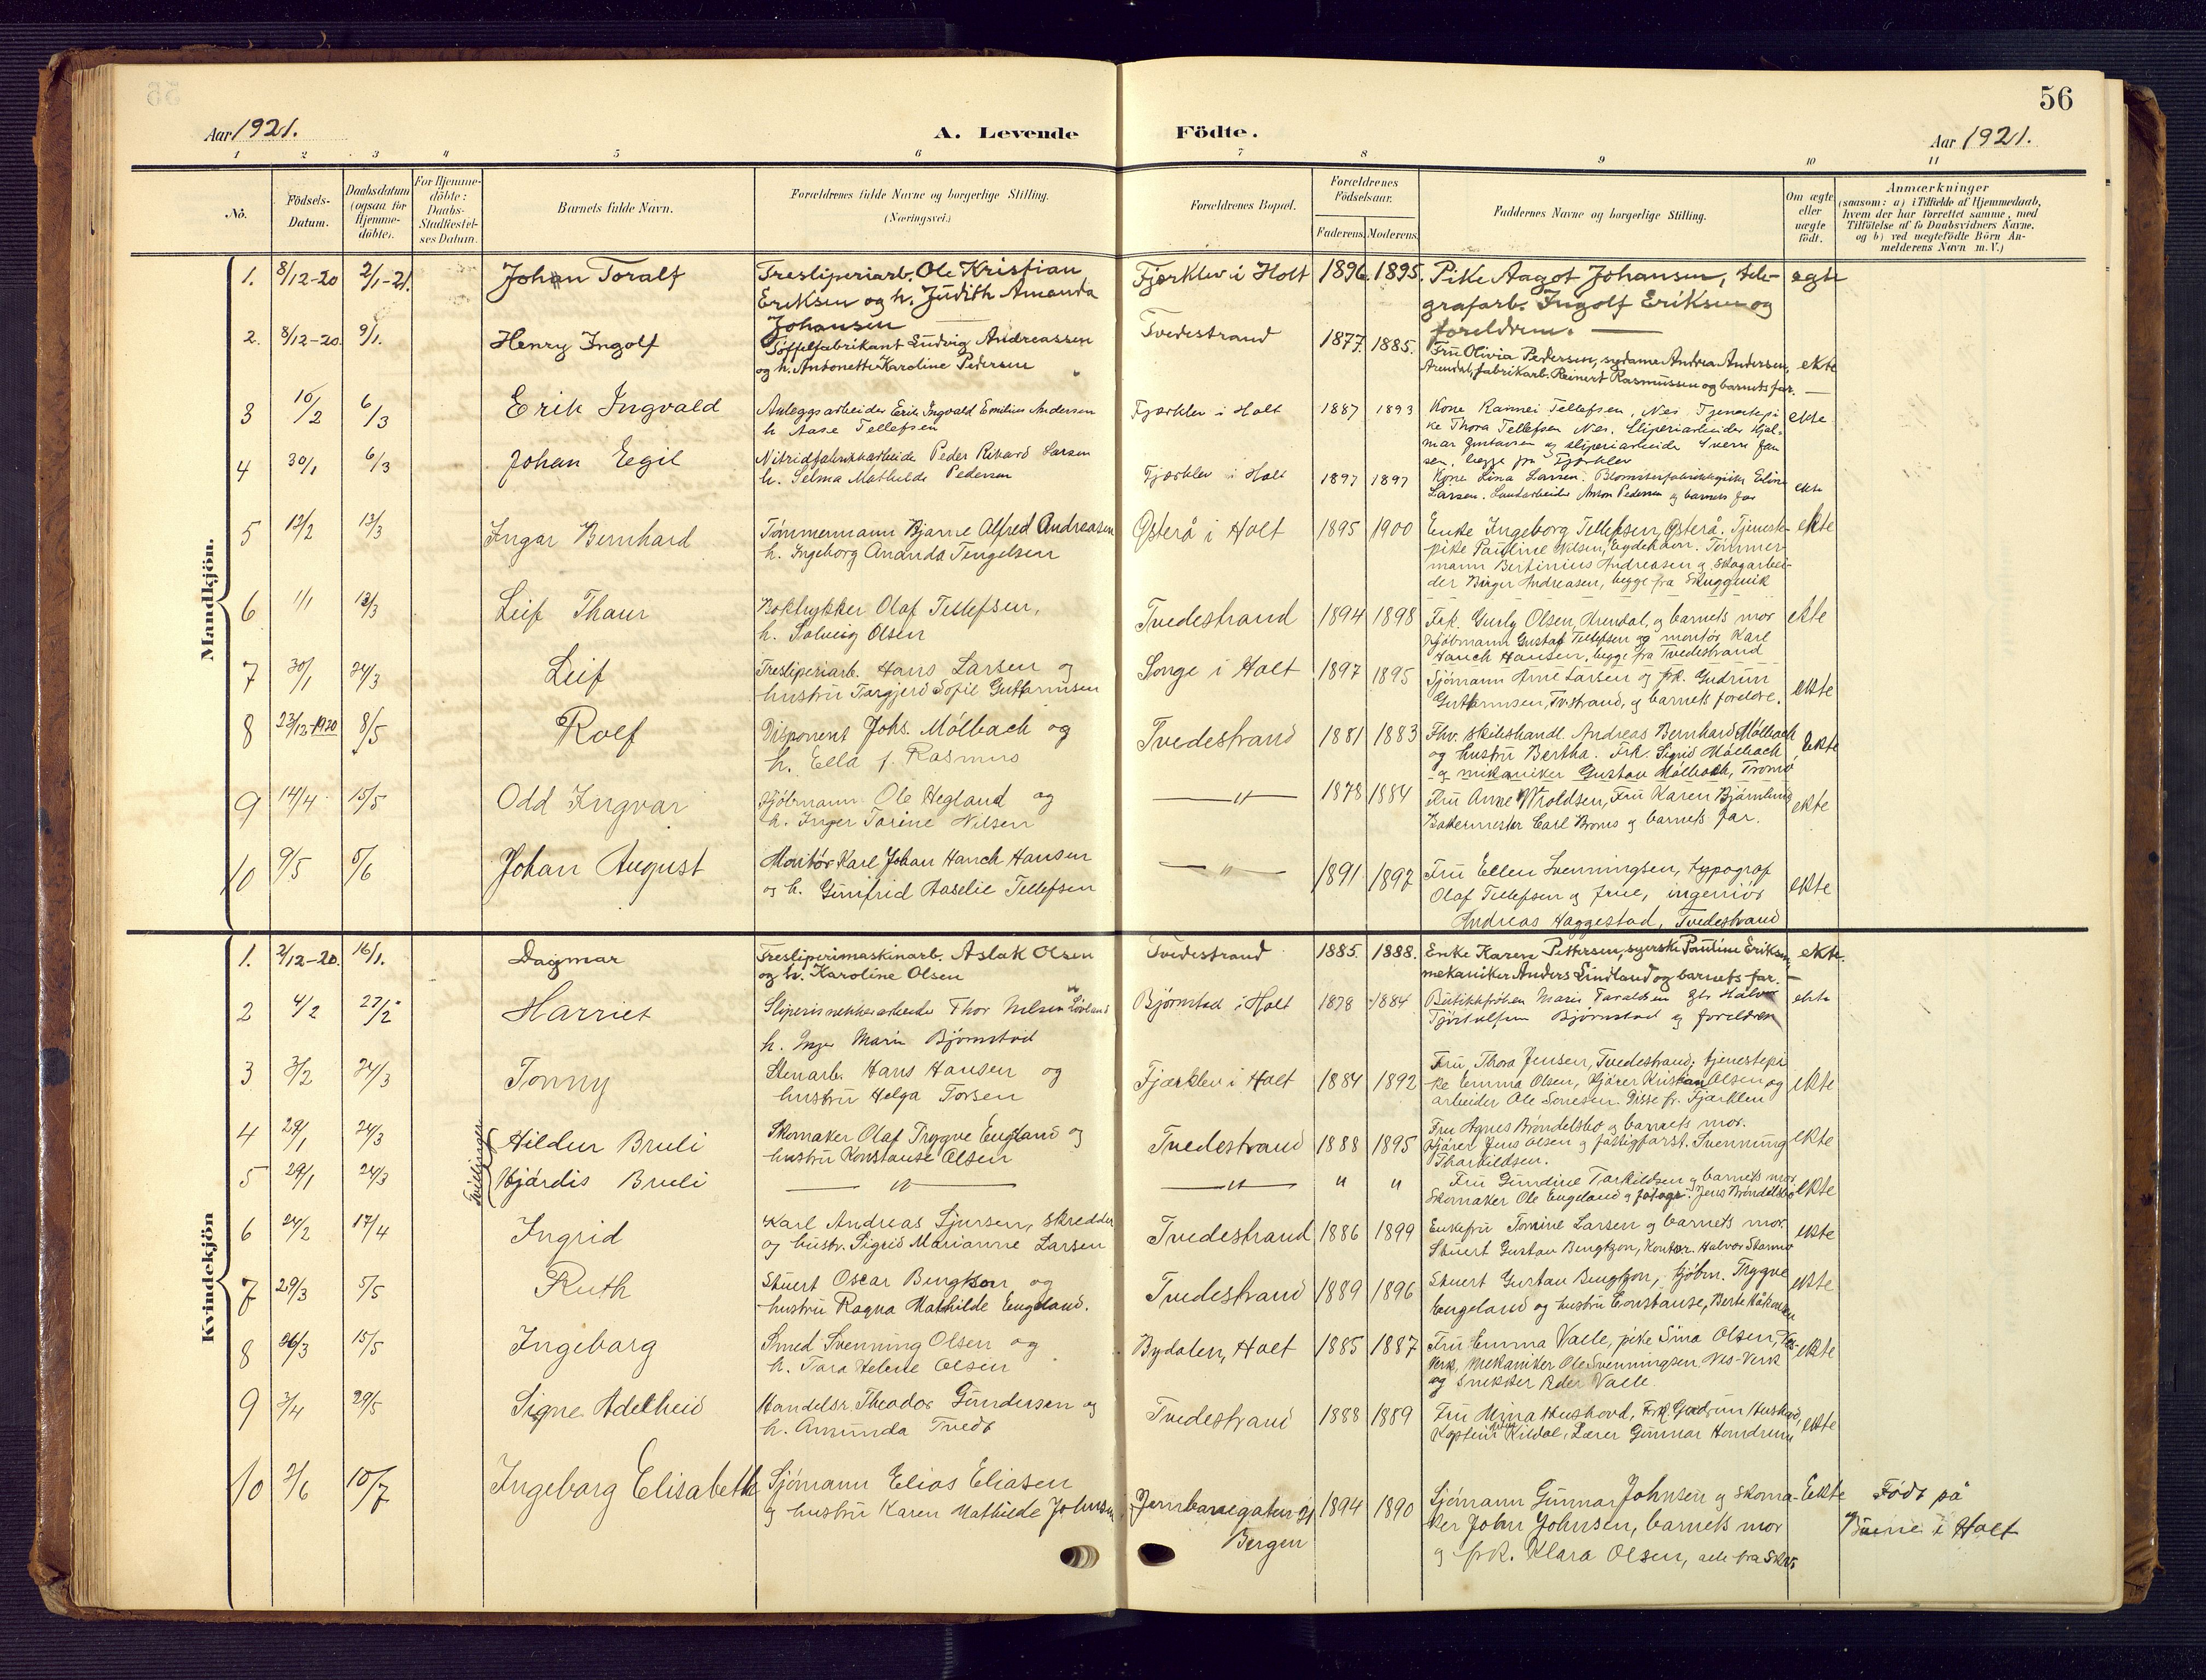 56
Aar 1921.
A. Levende Födte.
Aar 1921.
1 2 3 4 5 6 7 8 9 10 11
No.
Födsels-Datum.
Daabsdatum (ogsaa for Hjemme-döbte).
For Hjemme-döbte: Daabs-Stadfæstel-ses Datum.
Barnets fulde Navn.
Forældrenes fulde Navne og borgerlige Stilling.
(Næringsvei.)
Forældrenes Bopæl.
Forældrenes Födselsaar.
Faderens. Moderens.
Faddernes Navne og borgerlige Stilling.
Om ægte eller uægte födt.
Anmærkninger
(saasom: a) i Tilfælde af Hjemmedaab,
hvem der har forrettet samme, med
Tilföielse af to Daabsvidners Navne,
og b) ved uægtefödte Börn An-
melderens Navn m. V.)
Mandkjön.
1. 8/12-20 2/1-21. Johan Toralf
Tresliperiarb. Ole Kristian
Eriksen og h. Judith Amanda
Johansen
Fjærklev i Holt 1896. 1895.
Pike Aagot Johansen, tele-
grafarb. Ingolf Eriksen og
foreldrene.
egte
2. 8/12-20. 9/1. Henry Ingolf
Tøffelfabrikant Ludvig Andreassen
og h. Antonette Karoline Pedersen
Tvedestrand 1877. 1885.
Fru Olivia Pedersen, sydame Andrea Andersen,
Arendal, fabrikarb. Reinert Rasmussen og barnets far.
ekte
3 10/2 6/3 Erik Ingvald
Anleggsarbeider Erik Ingvald Emilius Andersen
h Aase Tellefsen
Fjærklev i Holt 1887 1893
Kone Ramei Tellefsen, Nes. Tjenestepi
ke Thora Tellefsen Nes. Sliperiarbeider Hjal-
mar Gustavsen og sliperiarbeider Sverre Jan
sen, begge fra Fjærklev
ekte
4 30/1 6/3 Johan Egil
Nitridfabrikkarbeide Peder Rikard Larsen
h. Selma Mathilde Pedersen
Fjærklev i Holt 1897 1897
Kone Lina Larsen. Blomsterfabrikkpike Elin
Larsen. Landarbeider Anton Pedersen og barnets far
ekte
5 13/2 13/3 Ingar Bernhard
Tømmermann Bjarne Alfred Andreasen
h. Ingeborg Ananda Tengelsen
Østerå i Holt 1895 1900
Enke Ingeborg Tellefsen, Østerå. Tjeneste-
pike Pauline Nilsen, Eydehavn. Tømmer-
mann Bertinius Andreasen og Skogarbei-
der Birger Andreasen, begge fra Skuggevik
ekte
6 1/1 13/3 Leif Thaur
Boktrykker Olaf Tellefsen,
h. Solveig Olsen
Tvedestrand 1894 1898
Frk. Gurly Olsen, Arendal, og barnets mor
Kjøbmann Gustaf Tellefsen og montør Karl
Hanch Hansen, begge fra Tvedestrand
ekte
7 30/1 24/3 Leif
Tresliperiarb. Hans Larsen og
hustru Torgjerd Sofie Guttormsen
Songe i Holt 1897 1895
Sjømann Arne Larsen og frk. Gudrun
Guttormsen, Tv.strand, og barnets foreldre.
ekte
8 23/12-1920 8/5 Rolf
Disponent Johs. Mölbach og
h. Ella f. Rasmus
Tvedestrand 1881 1883
Fhv. skibshandl. Andreas Bernhard Mölbach
og hustru Bertha. Frk. Sigrid Mölbach
og mekaniker Gustav Mölbach, Tromö
Ekte
9 14/4 15/5 Odd Ingvar
Kjöbmann Ole Hegland og
h. Inger Torine Nilsen
— " — 1878 1884
Fru Anne Wroldsen, Fru Karen Bjørnlund
Bakermester Carl Broms og barnets far.
ekte
10 9/5 5/6 Johan August
Montør Karl Johan Hanch Hansen
og h. Gunfrid Aaselie Tellefsen
— " — 1891 1897
Fru Ellen Svenningsen, typograf
Olaf Tellefsen og frue, ingeniør
Andreas Haggestad, Tvedestrand
ekte
Kvindekjön
1. 2/12-20. 16/1. Dagmar
Tresliperimaskinarb. Aslak Olsen
og h. Karoline Olsen
Tvedestrand 1885. 1888.
Enke Karen Pettersen, syerske Pauline Eriksen,
mekaniker Anders Lindland og barnets far.
ekte.
2 4/2 27/2 Harriet
Sliperisnekkerarbeide Thor Nilsen Løvland
h. Inger Marie Bjørnstad
Bjørnstad i Holt 1878 1884
Butikkfrøken Marie Taraldsen gbr Halvor
Tjöstolfsen Bjørnstad og foreldren
ekte
3 3/2 24/3 Tonny
Stenarb. Hans Hansen og
hustru Helga Torsen
Fjærklev i Holt 1884 1892
Fru Thora Jensen, Tvedestrand, tjenestepi
ke Emma Olsen, Kjører Kristian Olsen og
arbeider Ole Sørensen. Disse fr. Fjærklev
ekte
Tvillinger
4 29/1 24/3 Hildur Bruli
Skomaker Olaf Trygve Engeland og
hustru Konstanse Olsen
Tvedestrand 1888 1895
Fru Agnes Bröndelsbo og barnets mor.
Kjører Jens Olsen og fattigforst. Svenning
Tharkildsen.
ekte
5 29/1 24/3 Hjördis Bruli
— " — — " — " "
Fru Gundine Tarkildsen og barnets mor.
Skomaker Ole Engeland og fotogr. Jens Bröndelsbo
ekte
6 24/2 17/4 Ingrid
Karl Andreas Sjursen, skredder
og hustr. Sigrid Marianne Larsen
Tvedestrand 1886 1899
Enkefru Tomine Larsen og barnets mor.
Stuert Gustav Bengtzon, Kontor. Halvor
ekte
7 29/3 5/5 Ruth
Stuert Oscar Bengtson og
hustru Ragna Mathilde Engeland.
Tvedestrand 1889 1896
Stuert Gustav Bengtzon, Kjøbm. Trygve
Engeland og hustru Constanse, Berte
ekte
8 26/3 15/5 Ingeborg
Smed Svenning Olsen og
h. Tora Helene Olsen
Bydalen, Holt 1885 1887
Fru Emma Valle, pike Sina Olsen, Nes-
Verk, Mekaniker Ole Svenningsen Nes-Verk
og snekker Peder Valle.
ekte
9 3/4 29/5 Signe Adelheid
Handelsr. Theodor Gundersen og
h. Amunda Tvedt
Tvedestrand 1888 1889
Fru Mina Hushovd, Frk. Gudrun Hushovd,
Kaptein Kildal, Lærer Gunnar Homdrum
ekte
10 2/6 10/7 Ingeborg Elisabeth
Sjömann Elias Eliasen
og hustru Karen Mathilde Johnsen
Jernbanegaten 21
Bergen
1894 1890
Sjömann Gunnar Johnsen og Skoma-
ker John Johnsen, barnets mor
og frk. Klara Olsen, alle fra
Ekte
Födt på
i Holt